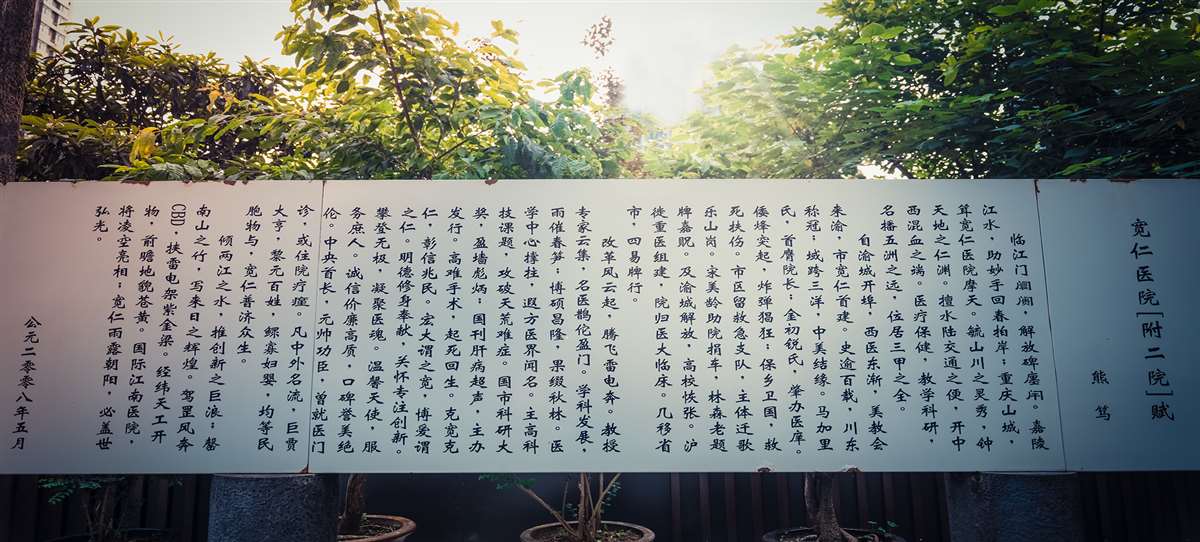 宽仁医院[附二院]赋
熊笃
临江门闤闠，解放碑廛闬。嘉陵
江水，助妙手回春拍岸；重庆山城，
茸宽仁医院摩天。毓山川之灵秀，钟
天地之仁渊。擅水陆交通之便，开中
西混血之端。医疗保健，教学科研，
名播五洲之远，位居三甲之全。
自渝城开埠，西医东渐，美教会
来渝，市宽仁首建。史逾百载，川东
称冠；域跨三洋，中美结缘。马加里
民，首膺院长；金初锐氏，肇办医庠。
倭烽突起，炸弹猖狂；保乡卫国，救
死扶伤。市区留救急支队，主体迁歌
乐山岗。宋美龄助院捐车，林森老题
牌嘉贶。及渝城解放，高校恢张。沪
徙重医组建，院归医大临床。几移省
市，四易牌行。
改革风云起，腾飞雷电奔。教授
专家云集，名医鹊伦盈门。学科发展，
雨催春笋；博硕昌隆，果缀秋林。医
学中心撑柱，遐方医界闻名。主高科
技课题，攻破天荒难症。国市科研大
奖，盈墙彪炳；国刊肝病超声，主办
发行。高难手术，起死回生。克宽克
仁，彰信兆民。宏大谓之宽，博爱谓
之仁。明德修身奉献，关怀专注创新。
攀登无极，凝聚医魂。温馨天使，服
务庶人。诚信价廉高质，口碑誉美绝
伦。中央首长，元帅功臣，曾就医门
诊，或住院疗痊。凡中外名流，巨贾
大亨，黎元百姓，鳏寡妇婴，均等民
胞物与，宽仁普济众生。
倾两江之水，推创新之巨浪；罄
南山之竹，写来日之辉煌。驾罡风奔
CBD，扶雷电架紫金梁。经纬天工开
物，前瞻地貌苍黄。国际江南医院，
将凌空亮相；宽仁雨露朝阳，必盖世
弘光。
公元二零零八年五月